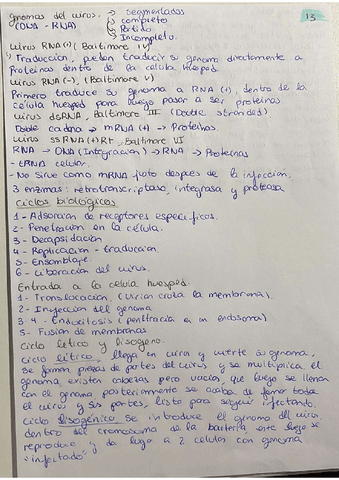 genomas del virus. → segmentados
(DNA - RNA) → completo
→ Partido
→ Incompleto.
13
virus RNA (+) (Baltimore IV)
Traducción, pueden traducir su genoma directamente a
Proteinas dentro de la celula huesped.
virus RNA (-), (Baltimore V)
Primero traduce su genoma a RNA (+), dentro de la
celula huesped para luego pasar a ser proteinas
virus dsRNA, Baltimore III (Double stranded)
Doble cadena → mRNA (+) → Proteinas.
virus ssRNA (+) RT, Baltimore VI
RNA → DNA (Integracion) → RNA → Proteinas
- tRNA celular.
- No sirve como mRNA justo despues de la infeccion.
3 enzimas: retrotranscriptasa, integrasa y proteasa
ciclos biologicos
1 - Adsorcion de receptores especificos.
2 - Penetracion en la celula.
3 - Decapsidacion
4 - Replicacion - traduccion.
5 - Ensamblaje.
6 - Liberacion del virus.
Entrada a la celula huesped.
1 - Translocacion, (virion cruza la membrana).
2 - Inyeccion del genoma
3 4 - Endocitosis (penetracion en un endosoma)
5 - Fusion de membranas
Ciclo litico y lisogeno.
ciclo litico, llega un virus y vierte su genoma,
se forman piezas de partes del virus y se multiplica el
genoma, existen cabezas pero vacias, que luego se llenan
con el genoma posteriormente se acaba de formar todo
el virus y sus partes, listo para seguir infectando.
ciclo lisogénico se introduce el genoma del virus
dentro del cromosoma de la bacteria, este luego se
reproduce y da lugar a 2 celulas con genoma
"infectado"